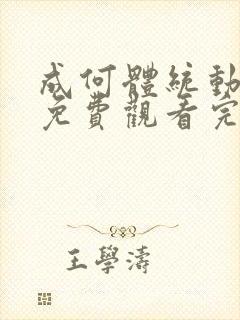 成何體統動
免費觀看完
王學濤